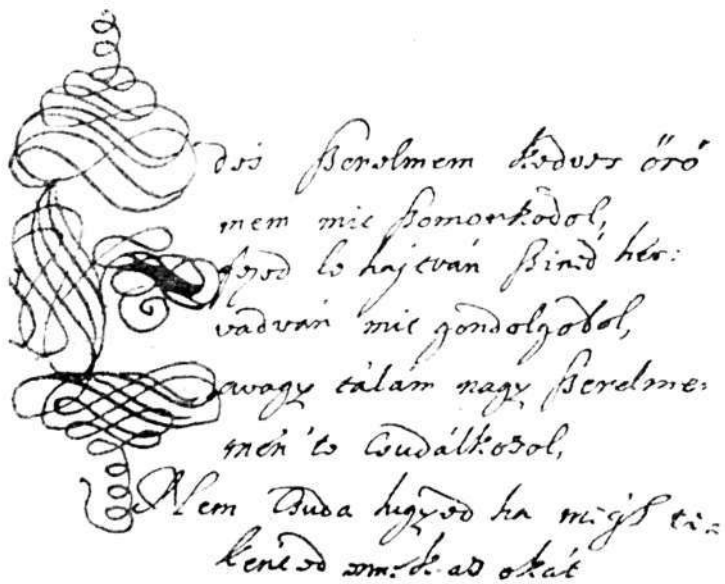 Edes szerelmem kedves örö
mem mit szomorkodol,
fejed le hajtván szined her:
vadván mit gondolgodol,
avagy tálám nagy szerelme:
men te csudálkozol,
Nem csuda higyed ha
okát